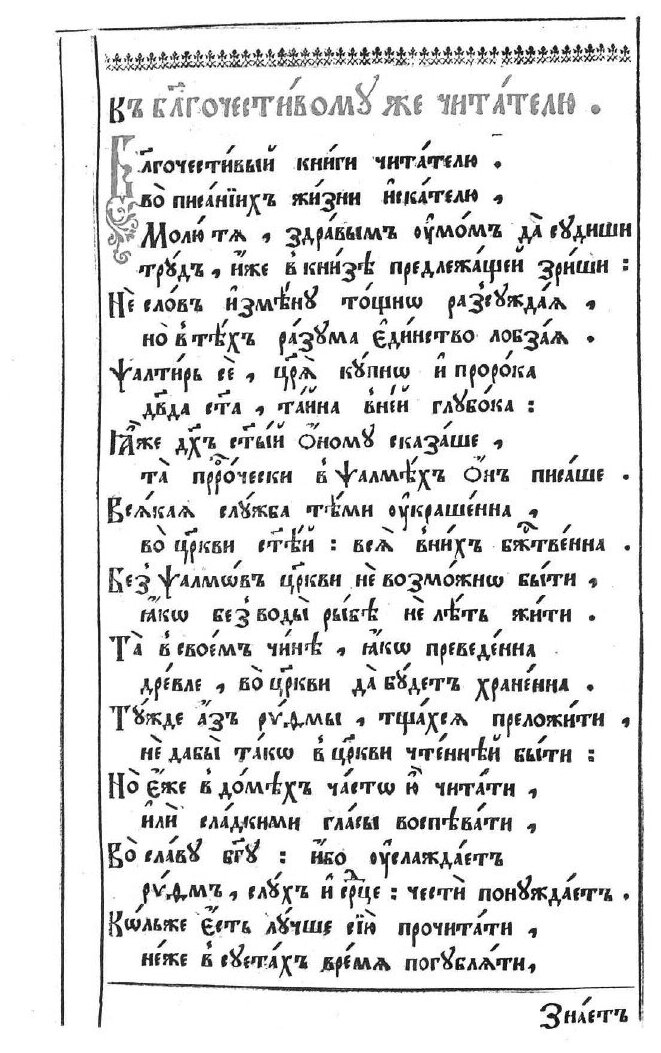 Къ бл҃гочести́вому же чита́телю .
Бл҃гочести́вый кни́ги чита́телю .
во̀ писа́нїихъ жи́зни и҆ска́телю ,
Молю́ тѧ , здра́вымъ ѹ҆мо́мъ да̀ сꙋ́диши
трꙋ́дъ , и҆́же в̾ кни́зѣ предлежа́щей зри́ши :
Нѐ сло́въ и҆змѣ́нꙋ то́щнѡ разсꙋжда́ѧ ,
но в̾ тѣ́хъ ра́зꙋма є҆ди́нство лобза́ѧ .
Ѱалти́рь сѐ , цр҃ѧ̀ кꙋ́пнѡ и҆ проро́ка
дв҃да ст҃а , та́йна в̾не́й глꙋбо́ка :
Ꙗ҆̀же дх҃ъ ст҃ы́й ѻ҆́номꙋ сказа́ше ,
та̀ прⷪ҇ро́чески в̾ ѱалмѣ́хъ ѻ҆́нъ писа́ше .
Всѧ́каѧ слꙋ́жба тѣ́ми ѹ҆краше́нна ,
во̀ цр҃кви ст҃ѣ́й : всѧ̀ в̾ни́хъ бжⷭ҇тве́нна .
Без̾ ѱалмѡ́въ цр҃кви нѐ возмо́жнѡ бы́ти ,
ꙗ҆́кѡ без̾ воды̀ ры́бѣ нѐ лѣ́ть жи́ти .
Та̀ в̾ свое́мъ чи́нѣ , ꙗ҆́кѡ преведе́нна
дре́вле , во̀ цр҃кви да̀ бꙋ́детъ хране́нна .
Тꙋ́жде а҆́зъ рѵ́ѳмы , тща́хсѧ преложи́ти ,
нѐ дабы̀ та́кѡ в̾ цр҃кви чте́ннѣй бы́ти :
Но̀ є҆́же в̾ до́мѣхъ ча́стѡ ю҆̀ чита́ти ,
и҆лѝ сла́дкими гла́сы воспѣва́ти ,
Во̀ сла́вꙋ бг҃ꙋ : и҆́бо ѹ҆слажда́етъ
рѵ́ѳмъ , слꙋ́хъ и҆ срⷣце : че́сти понꙋжда́етъ .
Ко́льже є҆́сть лꙋ́чше сїю̀ прочита́ти ,
не́же в̾ сꙋета́хъ вре́мѧ погꙋблѧ́ти,
Зна́етъ